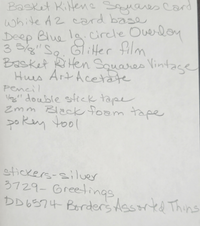 Basket Kittens Squares Card
White A2 card base
Deep Blue lg. circle Overlay
3 5/8" Sq. Glitter film
Basket Kitten Squares Vintage
Hues Art Acetate
Pencil
1/8" double stick tape
2mm Black foam tape
pokey tool
stickers - silver
3729 - Greetings
DD6574 - Borders, Assorted Thins